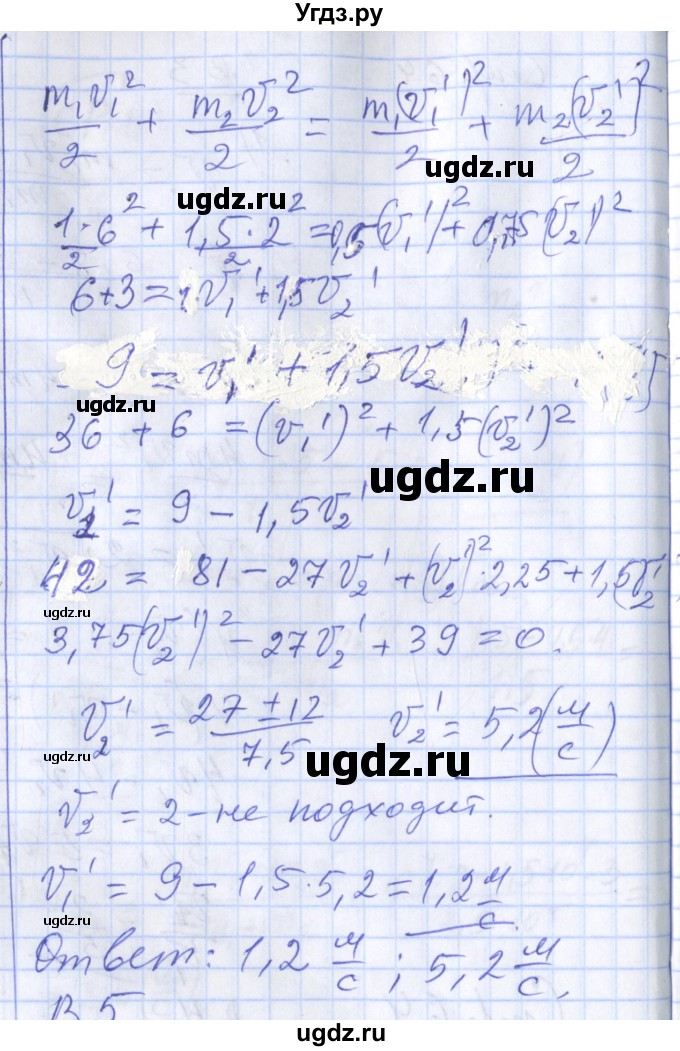 Угдз.ру
m₁v₁²/2 + m₂v₂²/2 = m₁(v₁')²/2 + m₂(v₂')²/2
ugdz.ru
1·6²/2 + 1,5·2²/2 = 0,5(v₁')² + 0,75(v₂')²
6+3=1·v₁'+1,5v₂'
9 = v₁' + 1,5v₂'
ugdz.ru
36 + 6 = (v₁')² + 1,5(v₂')²
ugdz.ru
v₁' = 9 - 1,5v₂'
42 = 81 - 27v₂' + (v₂')²·2,25 + 1,5(v₂'
ugdz.ru
ugdz.ru
3,75(v₂')² - 27v₂' + 39 = 0.
v₂' = (27 ± 12)/7,5 v₂' = 5,2 (м/с)
ugdz.ru
v₂' = 2 - не подходит.
v₁' = 9 - 1,5·5,2 = 1,2 м/с
ugdz.ru
ugdz.ru
Ответ: 1,2 м/с ; 5,2 м/с.
В 5
ugdz.ru